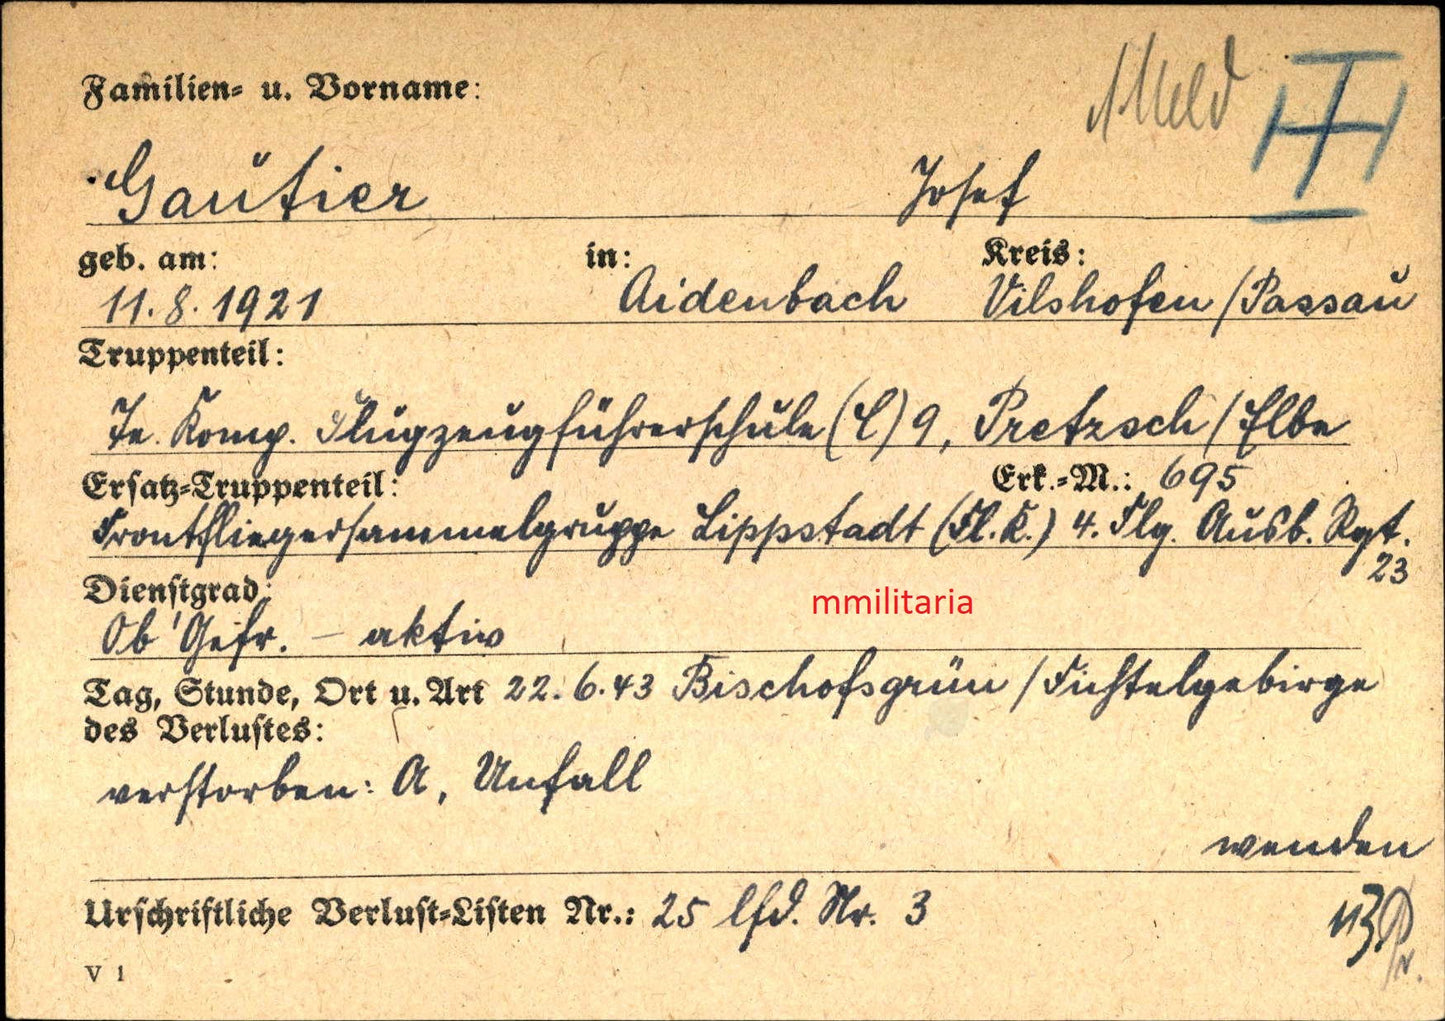 Familien- u. Vorname:
1 Meld
Gautier Josef
geb. am: in: Kreis:
11.8.1921 Aidenbach Vilshofen/Passau
Truppenteil:
Te. Komp. Flugzeugführerschule (C) 9, Pretzsch/Elbe
Ersatz-Truppenteil: Erk.-M.: 695
Frontfliegersammelgruppe Lippstadt (Fl.K.) 4. Flg. Ausb. Rgt.
23
Dienstgrad:
mmilitaria
Ob'Gefr. - aktiv
Tag, Stunde, Ort u. Art 22.6.43 Bischofsgrün/Fichtelgebirge
des Verlustes:
verstorben: A, Unfall
wenden
Urschriftliche Verlust-Listen Nr.: 25 lfd. Nr. 3
V 1